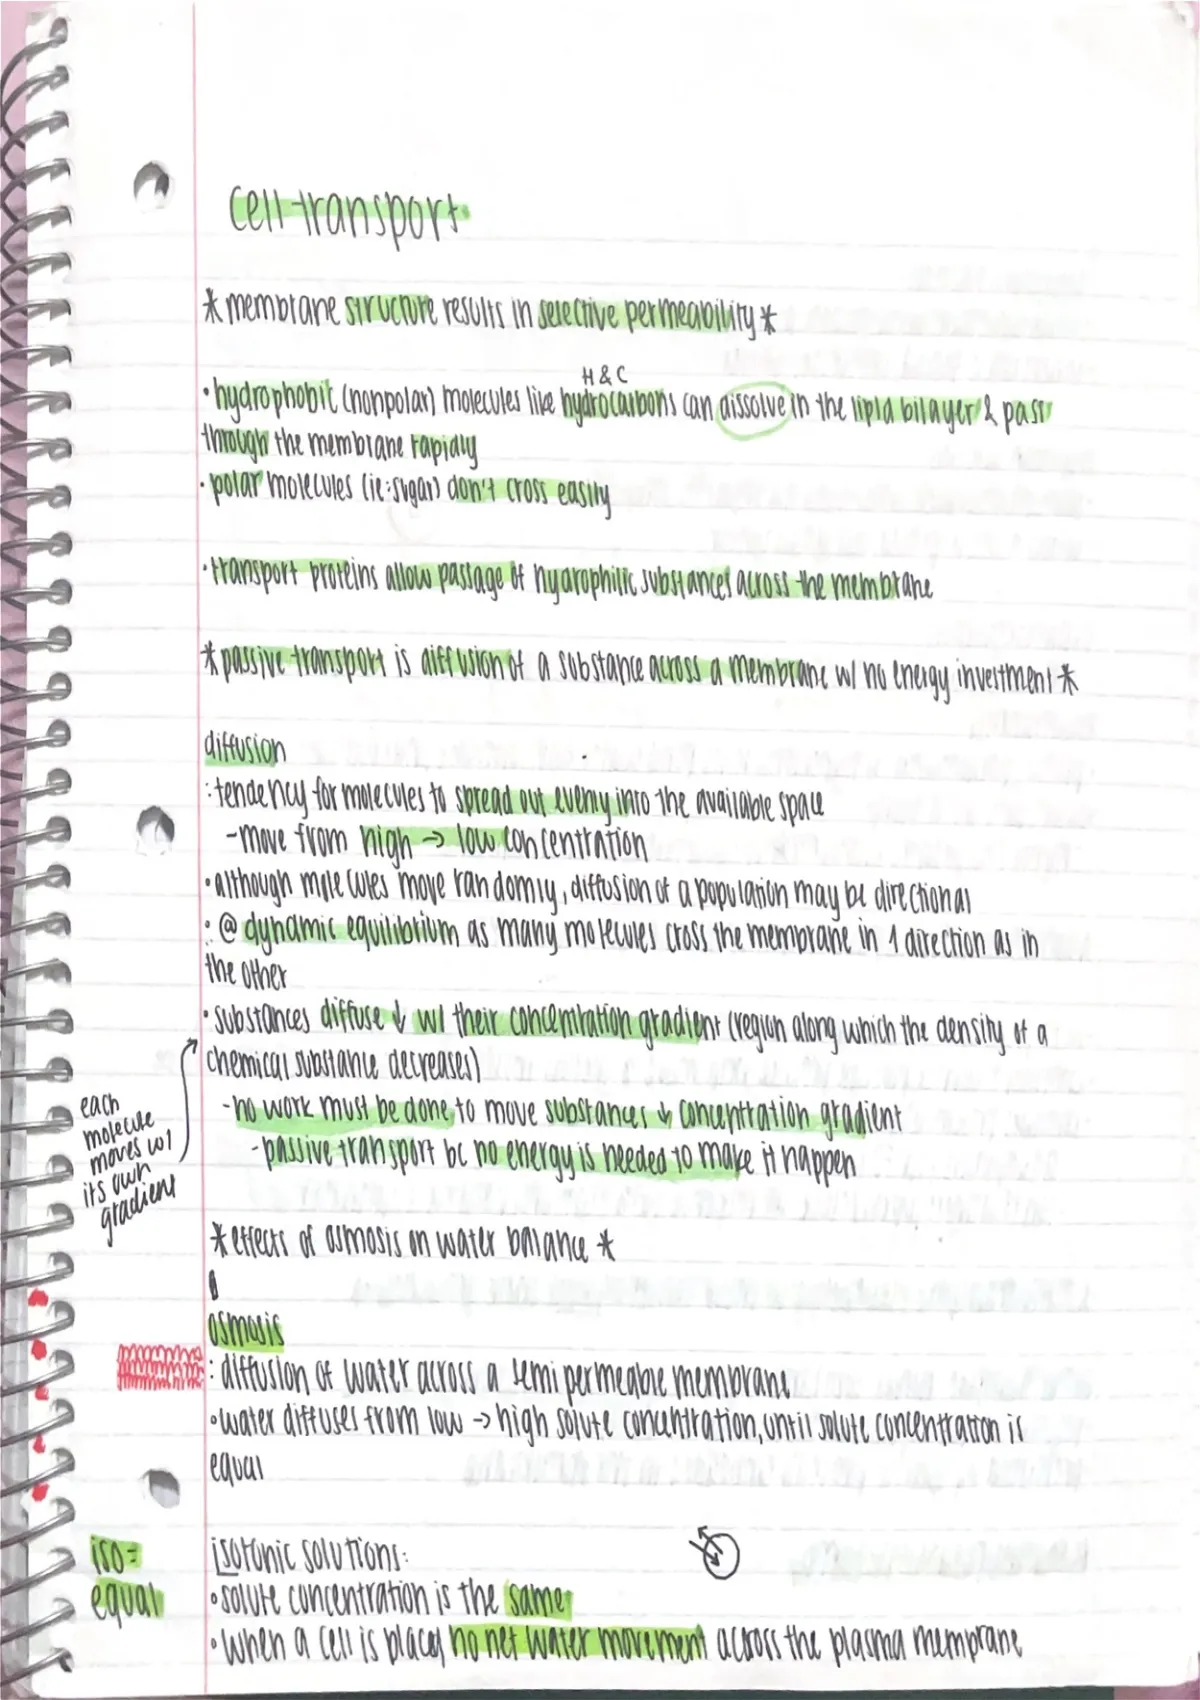 cell transport
* membrane structure results in selective permeability *
H & C
• hydrophobic (nonpolar) molecules like hydrocarbons can dissolve in the lipid bilayer & pass
through the membrane rapidly
• polar molecules (ie: sugar) don't cross easily
• transport proteins allow passage of hydrophilic substances across the membrane
* passive transport is diffusion of a substance across a membrane w/ no energy investment *
diffusion
: tendency for molecules to spread out evenly into the available space
- move from high → low concentration
• although molecules move randomly, diffusion of a population may be directional
• @ dynamic equilibrium as many molecules cross the membrane in 1 direction as in
the other
• substances diffuse ↓ w/ their concentration gradient (region along which the density of a
chemical substance decreases)
- no work must be done to move substances ↓ concentration gradient
- passive transport bc no energy is needed to make it happen
each
molecule
moves w/
its own
gradient
* effects of osmosis on water balance *
osmosis
: diffusion of water across a semipermeable membrane
• water diffuses from low → high solute concentration, until solute concentration is
equal
iso =
equal
isotonic solutions:
• solute concentration is the same
• when a cell is placed no net water movement across the plasma membrane